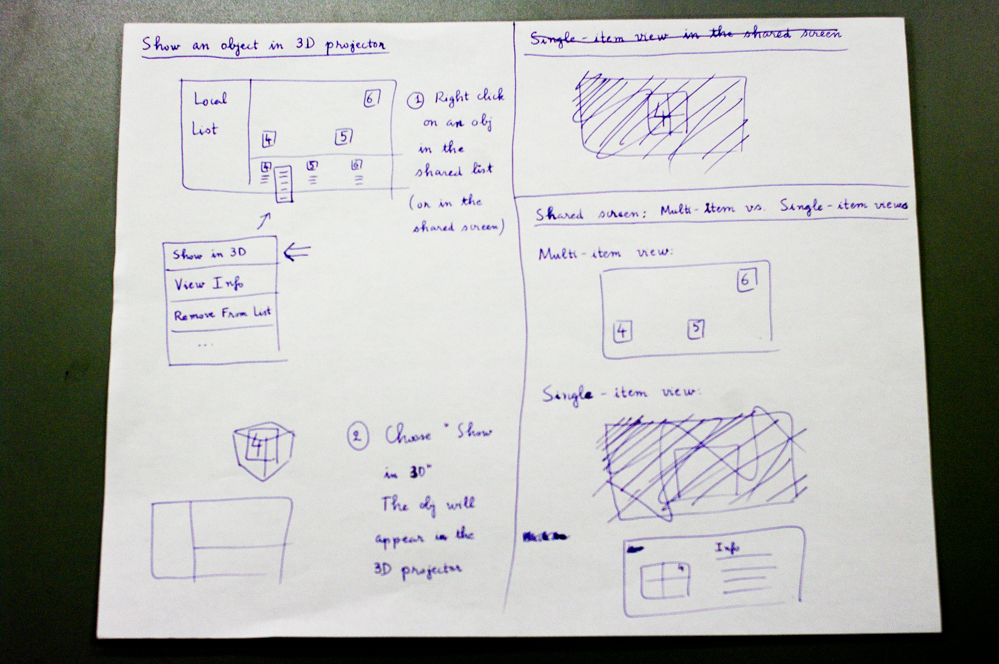 Show an object in 3D projector
Local
List
6
4
5
4
5
6
1 Right click
on an obj
in the
shared list
(or in the
shared screen)
Show in 3D
View Info
Remove From List
...
4
2 Choose "Show
in 3D"
The obj will
appear in the
3D projector
Single-item view in the shared screen
4
Shared screen: Multi-Item vs. Single-item views
Multi-item view:
6
4
5
Single-item view:
Info
4